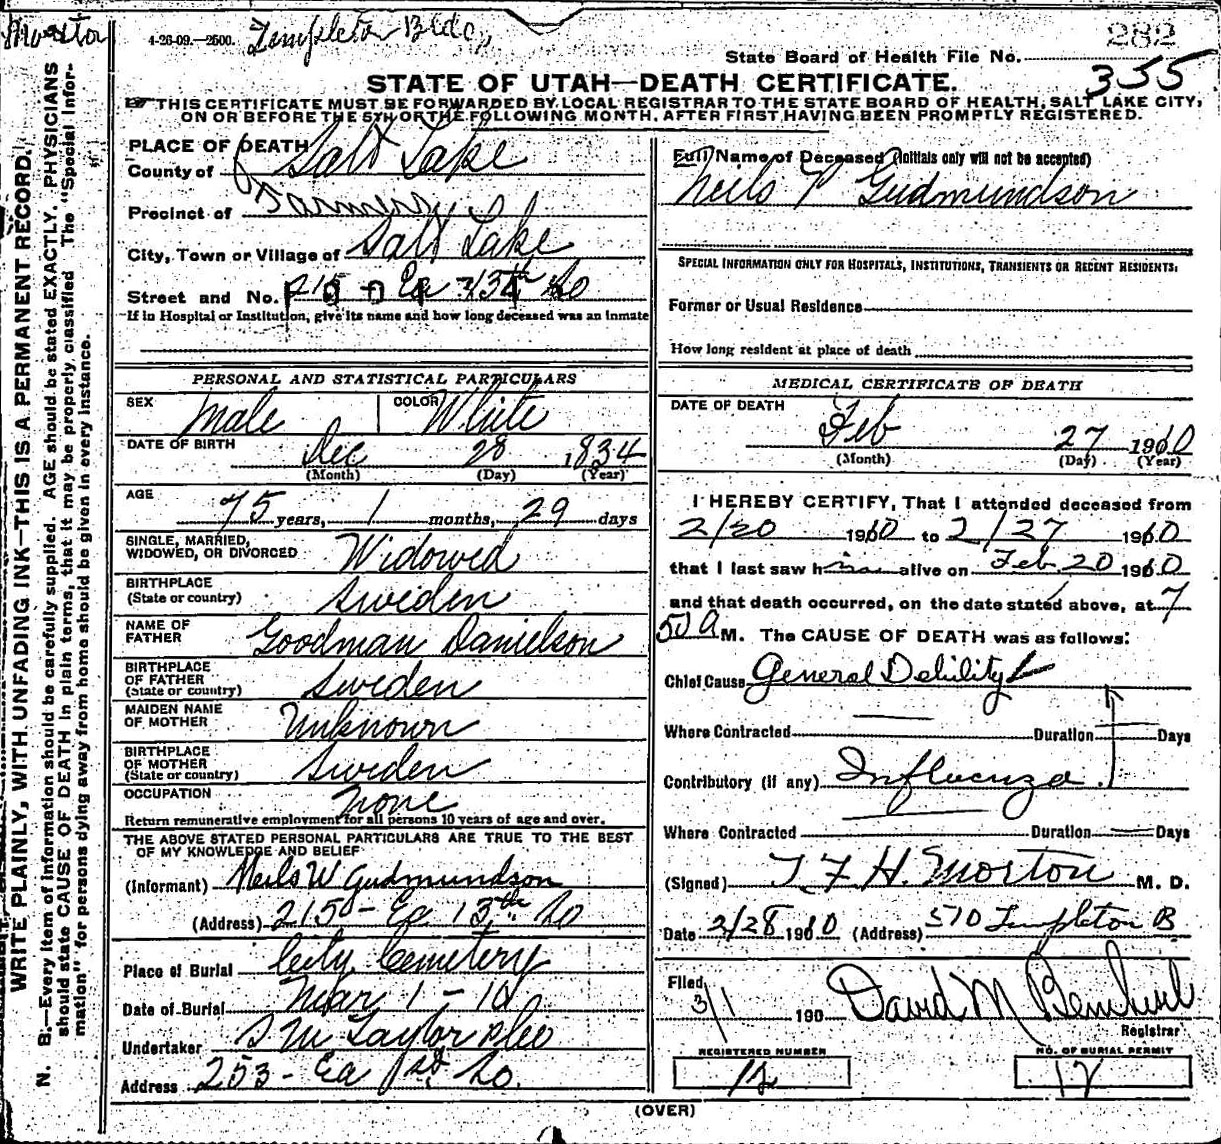 Morton
4-26-09.—2500. Templeton Bldg,
282
State Board of Health File No.
355
STATE OF UTAH—DEATH CERTIFICATE.
THIS CERTIFICATE MUST BE FORWARDED BY LOCAL REGISTRAR TO THE STATE BOARD OF HEALTH, SALT LAKE CITY,
ON OR BEFORE THE 5TH OF THE FOLLOWING MONTH, AFTER FIRST HAVING BEEN PROMPTLY REGISTERED.
WRITE PLAINLY, WITH UNFADING INK—THIS IS A PERMANENT RECORD.
N. B.—Every item of information should be carefully supplied. AGE should be stated EXACTLY. PHYSICIANS
should state CAUSE OF DEATH in plain terms, that it may be properly classified. The "Special Infor-
mation" for persons dying away from home should be given in every instance.
PLACE OF DEATH
County of Salt Lake
Precinct of Farmers
City, Town or Village of Salt Lake
Street and No. 215 Ea 13th So
If in Hospital or Institution, give its name and how long deceased was an inmate
PERSONAL AND STATISTICAL PARTICULARS
SEX Male COLOR White
DATE OF BIRTH Dec 28 1834
(Month) (Day) (Year)
AGE 75 years, 1 months, 29 days
SINGLE, MARRIED,
WIDOWED, OR DIVORCED Widowed
BIRTHPLACE
(State or country) Sweden
NAME OF
FATHER Goodman Danielson
BIRTHPLACE
OF FATHER
(State or country) Sweden
MAIDEN NAME
OF MOTHER Unknown
BIRTHPLACE
OF MOTHER
(State or country) Sweden
OCCUPATION None
Return remunerative employment for all persons 10 years of age and over.
THE ABOVE STATED PERSONAL PARTICULARS ARE TRUE TO THE BEST
OF MY KNOWLEDGE AND BELIEF
(Informant) Neils W Gudmundson
(Address) 215 - Ea 13th So
Place of Burial City Cemetery
Date of Burial Mar 1 - 10
Undertaker S M Taylor
Address 253 - Ea 1st So.
Full Name of Deceased (Initials only will not be accepted)
Neils P Gudmundson
SPECIAL INFORMATION ONLY FOR HOSPITALS, INSTITUTIONS, TRANSIENTS OR RECENT RESIDENTS:
Former or Usual Residence
How long resident at place of death
MEDICAL CERTIFICATE OF DEATH
DATE OF DEATH
Feb 27 1910
(Month) (Day) (Year)
I HEREBY CERTIFY, That I attended deceased from
2/20 1910 to 2/27 1910
that I last saw him alive on Feb. 20 1910
and that death occurred, on the date stated above, at 7
50 A M. The CAUSE OF DEATH was as follows:
Chief Cause General Debility
Where Contracted Duration Days
Contributory (if any) Influenza.
Where Contracted Duration Days
(Signed) T F H. Morton M. D.
Date 2/28 1910 (Address) 510 Templeton B
Filed
3/1 190 David M
Registrar
REGISTERED NUMBER NO. OF BURIAL PERMIT
12 12
(OVER)